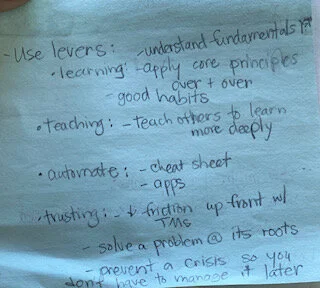 - Use levers: - understand fundamentals 1st
• learning: - apply core principles
over + over
- good habits
• teaching: - teach others to learn
more deeply
• automate: - cheat sheet
- apps
• trusting: - ↓ friction up-front w/
TMS
- solve a problem @ its roots
- prevent a crisis so you
don't have to manage it later